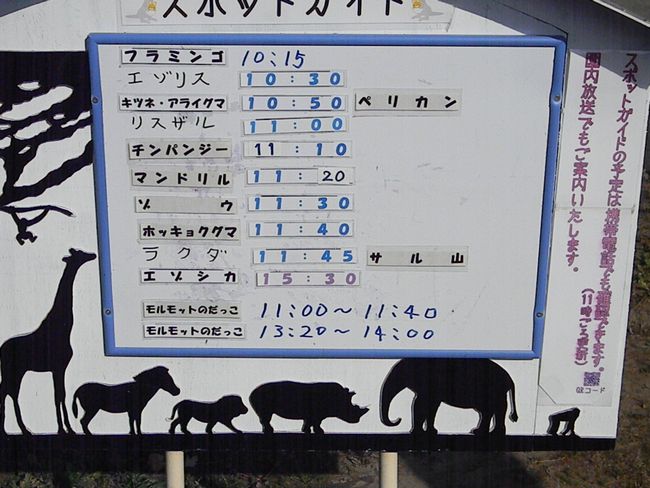 スポットガイド
フラミンゴ 10:15
エゾリス 10:30
キツネ・アライグマ 10:50 ペリカン
リスザル 11:00
チンパンジー 11:10
マンドリル 11:20
ゾウ 11:30
ホッキョクグマ 11:40
ラクダ 11:45 サル山
エゾシカ 15:30
モルモットのだっこ 11:00～11:40
モルモットのだっこ 13:20～14:00
スポットガイドの予定は携帯電話でも確認できます。
(11時ごろ更新)
園内放送でもご案内いたします。
QRコード